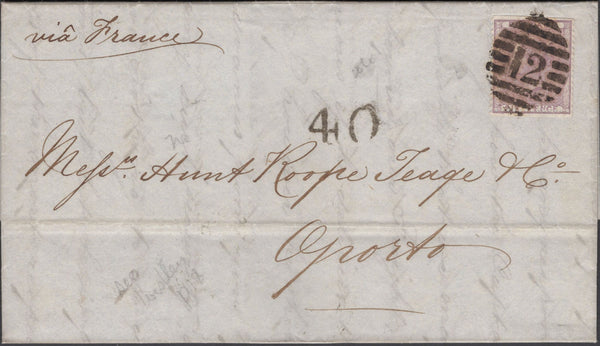 viâ France
12
PENCE
40
Messrs. Hunt Roope Teage & Co.
Oporto
see